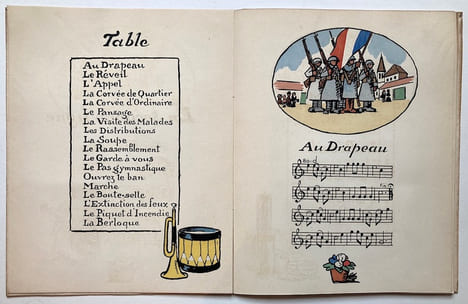 Table
Au Drapeau
Le Réveil
L'Appel
La Corvée de Quartier
La Corvée d'Ordinaire
Le Pansage
La Visite des Malades
Les Distributions
La Soupe
Le Rassemblement
Le Garde à vous
Le Pas gymnastique
Ouvrez le ban
Marche
Le Boute-selle
L'Extinction des feux
Le Piquet d'Incendie
La Berloque
Au Drapeau